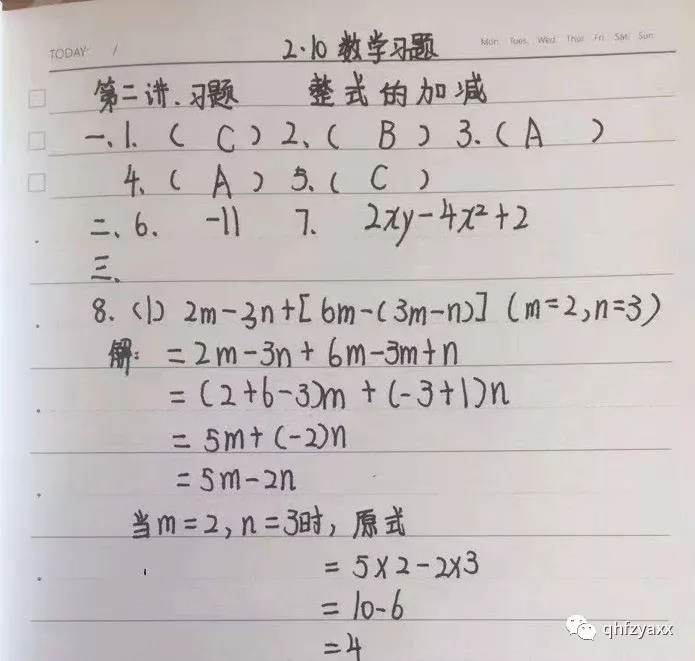 TODAY: /
2·10 数学习题
Mon Tues Wed Thur Fri Sat Sun
第二讲.习题 整式的加减
一、1.( C ) 2、( B ) 3.( A )
4、( A ) 5.( C )
二、6. -11 7. 2xy-4x²+2
三、
8.(1) 2m-3n+[6m-(3m-n)] (m=2,n=3)
解: =2m-3n+6m-3m+n
=(2+6-3)m+(-3+1)n
=5m+(-2)n
=5m-2n
当m=2,n=3时,原式
=5×2-2×3
=10-6
=4
qhfzyaxx